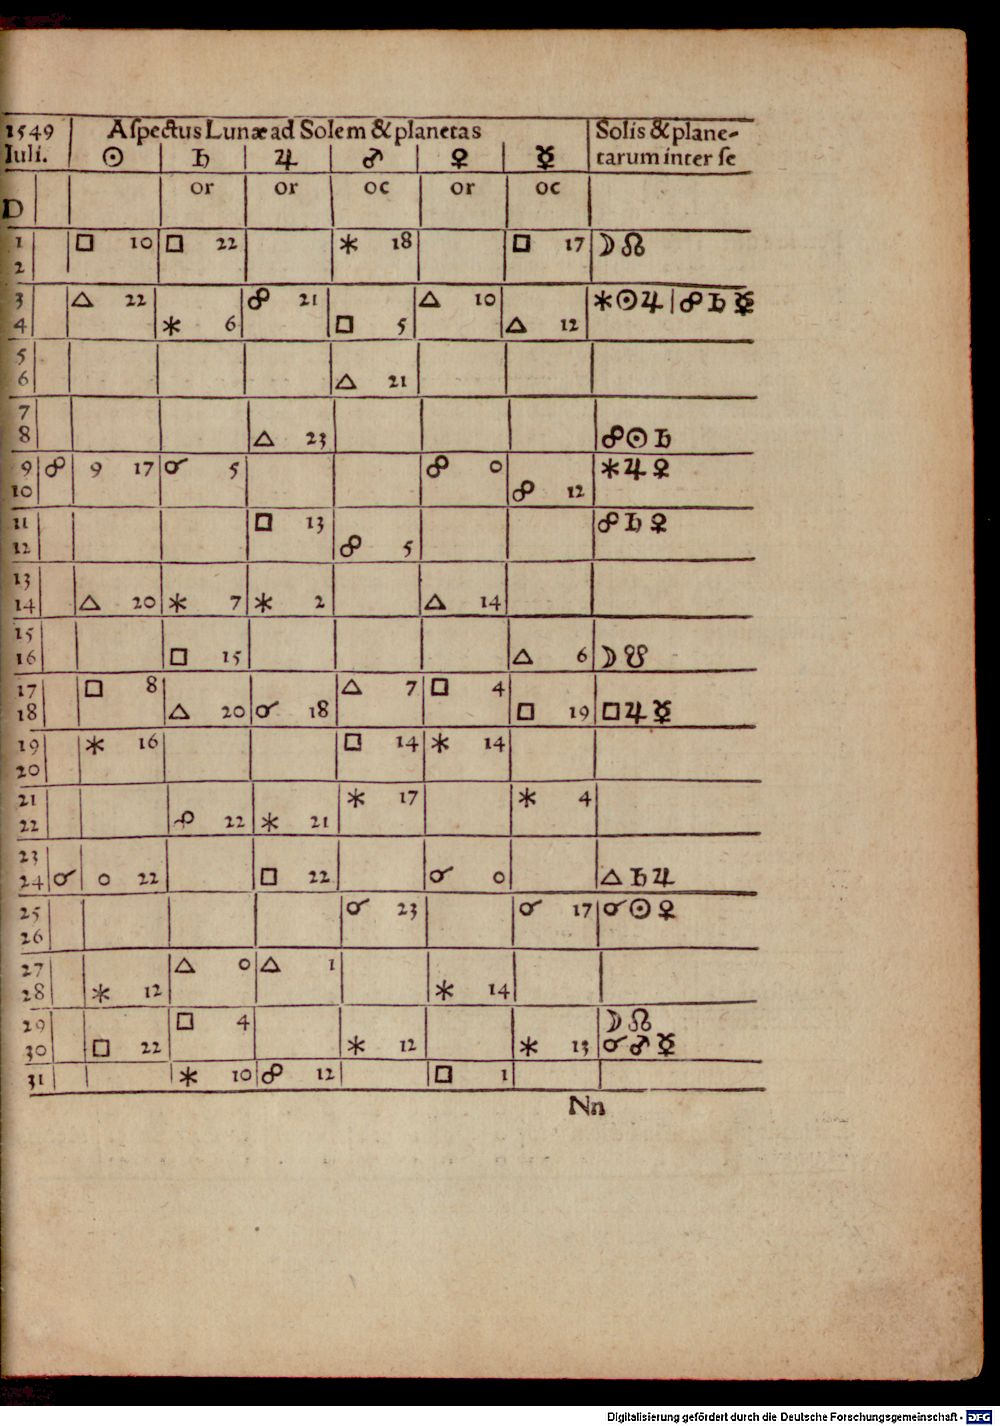 1549 | Aſpectus Lunæ ad Solem & planetas | Solis & plane-
Iuli. | ☉ | ♄ | ♃ | ♂ | ♀ | ☿ | tarum inter ſe
or | or | oc | or | oc
D
1 | □ 10 | □ 22 | | ⚹ 18 | | □ 17 | ☽ ☊
2
3 | △ 22 | | ☍ 21 | | △ 10 | | ⚹ ☉ ♃ | ☍ ♄ ☿
4 | | ⚹ 6 | | □ 5 | | △ 12
5
6 | | | | △ 21
7
8 | | | △ 23 | | | | ☍ ☉ ♄
9 | ☍ | 9 17 | ☌ 5 | | | ☍ 0 | | ⚹ ♃ ♀
10 | | | | | | ☍ 12
11 | | | □ 13 | | | | ☍ ♄ ♀
12 | | | | ☍ 5
13
14 | △ 20 | ⚹ 7 | ⚹ 2 | | △ 14
15
16 | | □ 15 | | | | △ 6 | ☽ ☋
17 | □ 8 | | | △ 7 | □ 4
18 | | △ 20 | ☌ 18 | | | □ 19 | □ ♃ ☿
19 | ⚹ 16 | | | □ 14 | ⚹ 14
20
21 | | | | ⚹ 17 | | ⚹ 4
22 | | ☍ 22 | ⚹ 21
23
24 | ☌ | 0 22 | | □ 22 | | ☌ 0 | | △ ♄ ♃
25 | | | | ☌ 23 | | ☌ 17 | ☌ ☉ ♀
26
27 | | △ 0 | △ 1
28 | ⚹ 12 | | | | ⚹ 14
29 | | □ 4 | | | | | ☽ ☊
30 | □ 22 | | | ⚹ 12 | | ⚹ 13 | ☌ ♂ ☿
31 | | ⚹ 10 | ☍ 12 | | □ 1
Nn
Digitalisierung gefördert durch die Deutsche Forschungsgemeinschaft - DFG